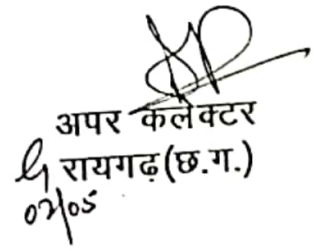 अपर कलेक्टर
रायगढ़ (छ.ग.)
02/05